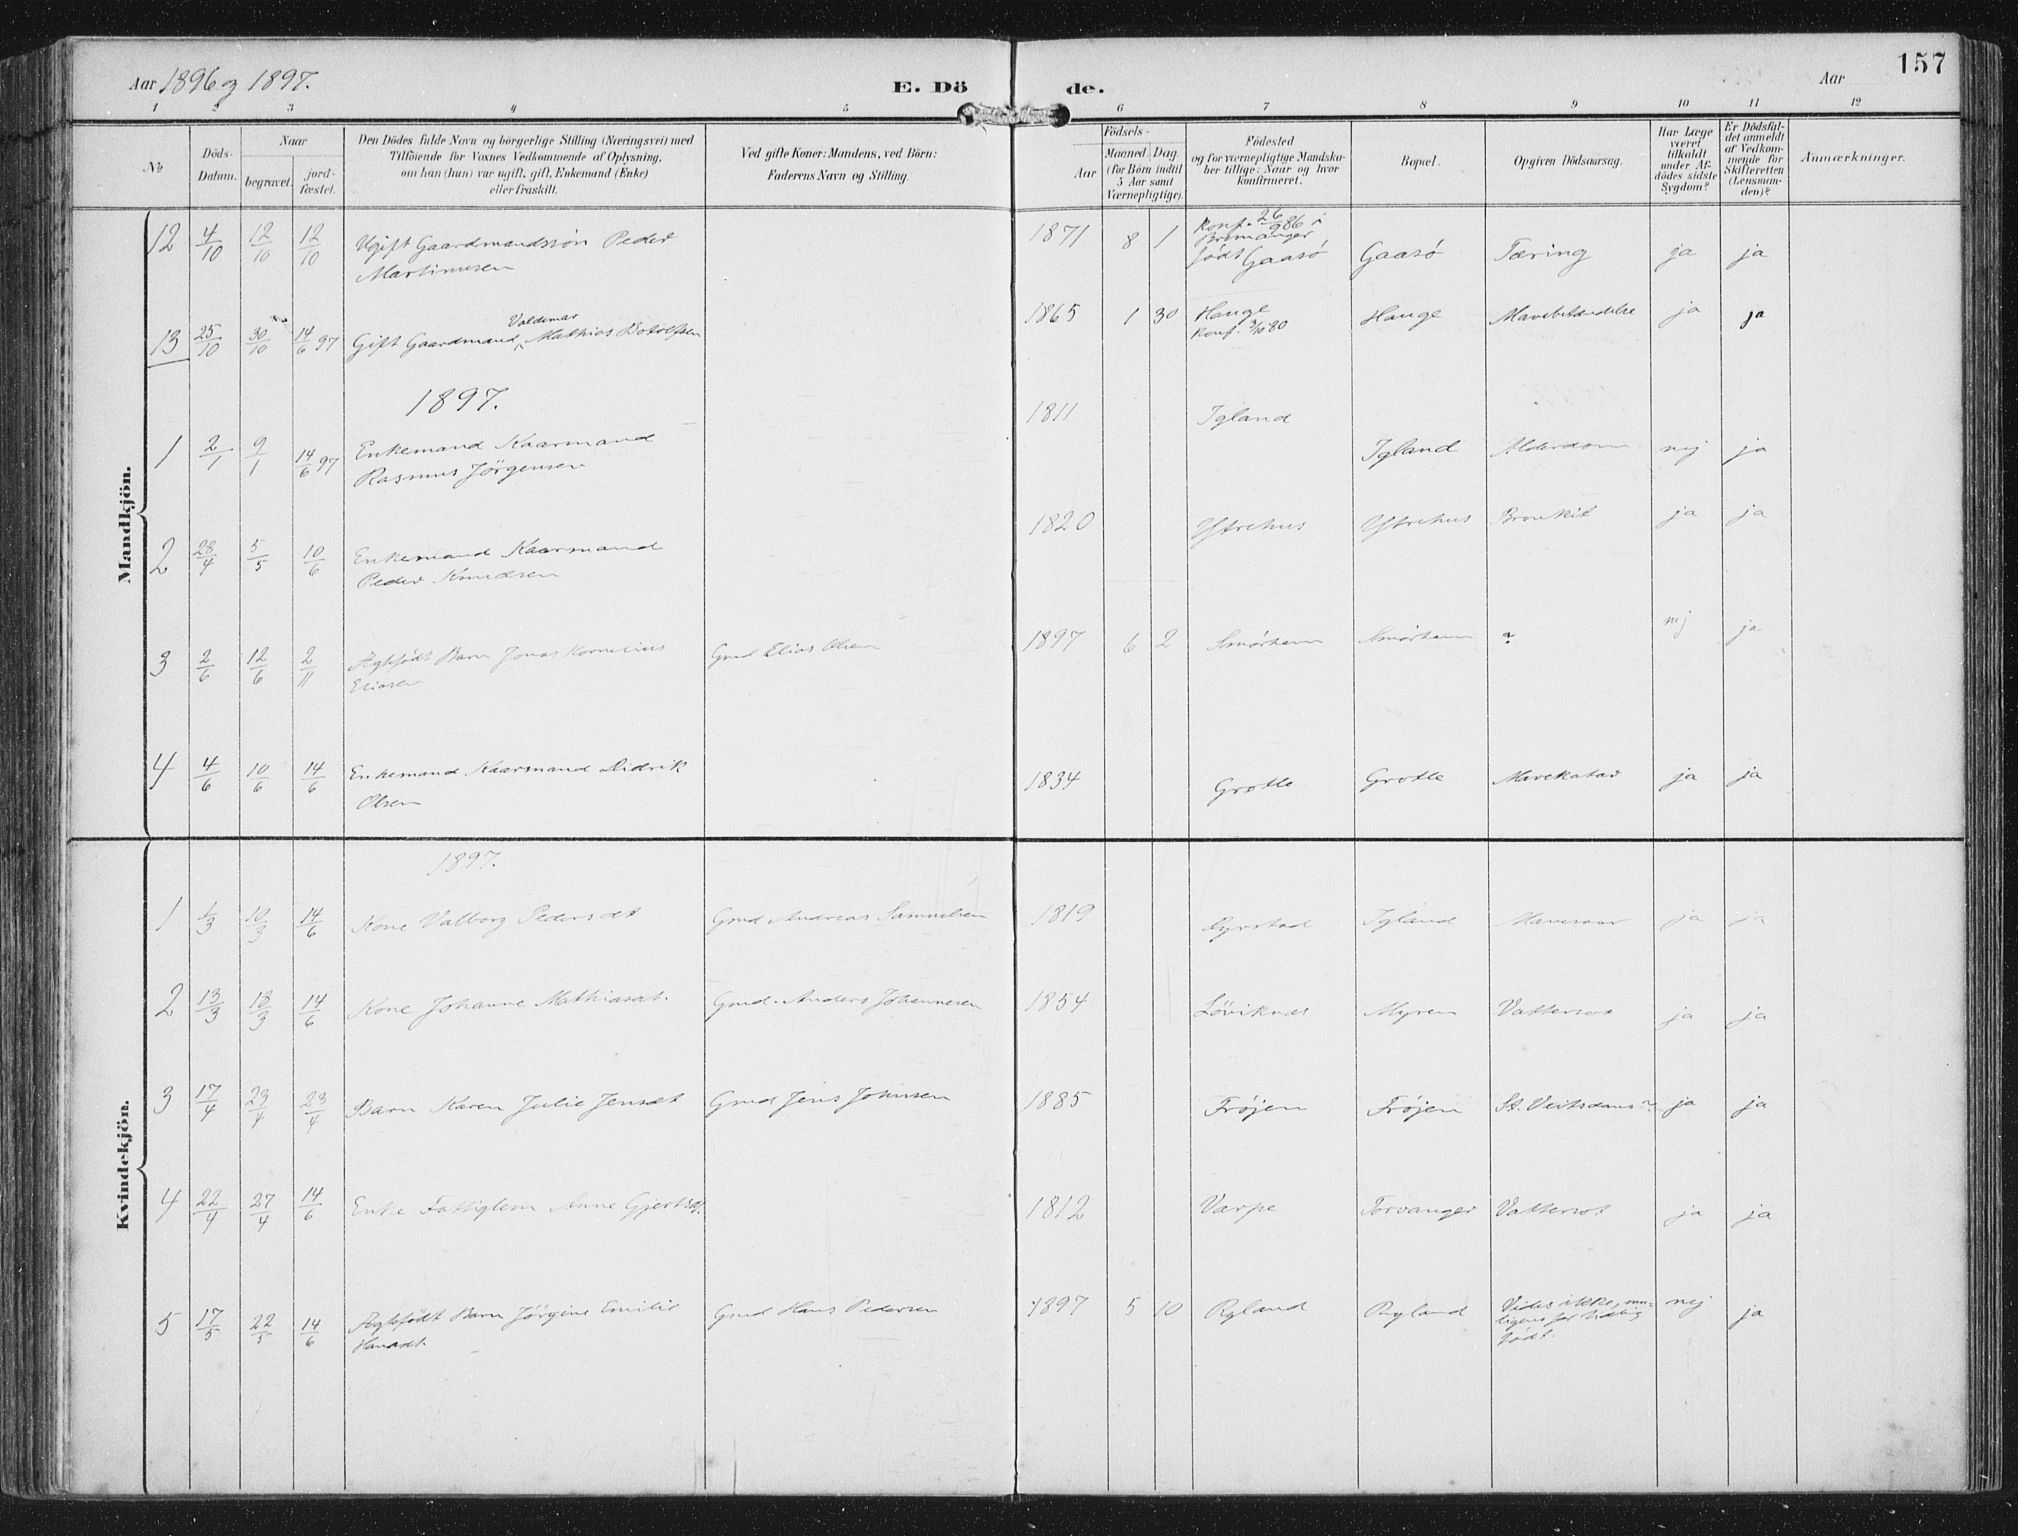 Aar 1896 og 1897.
E. Dö de.
Aar
157
1 2 3 4 5 6 7 8 9 10 11 12
No
Döds-
Datum.
Naar
begravet.
jord-
fæstet.
Den Dödes fulde Navn og borgerlige Stilling (Næringsvei) med
Tilföiende for Voxnes Vedkommende af Oplysning,
om han (hun) var ugift, gift, Enkemand (Enke)
eller fraskilt.
Ved gifte Koner: Mandens, ved Börn:
Faderens Navn og Stilling.
Födsels-
Aar
Maaned. Dag.
(for Börn indtil
5 Aar samt
Værnepligtige).
Födested
og for værnepligtige Mandska-
ber tillige: Naar og hvor
konfirmeret.
Bopæl.
Opgiven Dödsaarsag.
Har Læge
været
tilkaldt
under Af-
dödes sidste
Sygdom?
Er Dödsfal-
det anmeldt
af Vedkom-
mende for
Skifteretten
(Lensman-
den)?
Anmærkninger.
Mandkjön.
12 4/10 12/10 12/10 Ugift Gaardmandssön Peder
Martinusen
1871 8 1 Konf. 26/9 86 i
Bremanger
født Gaasö Gaasö Tæring ja ja
13 25/10 30/10 14/6 97 Gift Gaardmand Valdemar Mathias Botolfsen
1865 1 30 Hauge
konf. 3/10 80 Hauge Mavebetændelse ja ja
1897.
1 2/1 9/1 14/6 97 Enkemand Kaarmand
Rasmus Jörgensen
1811 Igland Igland Alderdom nej ja
2 28/4 5/5 10/6 Enkemand Kaarmand
Peder Knudsen
1820 Ystrehus Ystrehus Bronkit ja ja
3 2/6 12/6 2/11 Ægtefödt Barn Jonas Kornelius
Eliasen
Gmd Elias Olsen
1897 6 2 Smörhavn Smörhavn ? nej ja
4 4/6 10/6 14/6 Enkemand Kaarmand Didrik
Olsen
1834 Grotle Grotle Mavekatar ja ja
Kvindekjön.
1897.
1 1/3 10/3 14/6 Kone Valborg Pedersdt Gmd Andreas Samuelsen 1819 Dyrstad Igland Mavesaar ja ja
2 13/3 18/3 14/6 Kone Johanne Mathiasdt. Gmd. Anders Johannesen 1854 Löviknes Myren Vattersot ja ja
3 17/4 23/4 23/4 Barn Karen Julie Jensdt Gmd Jens Johnsen 1885 Fröjen Fröjen St. Veitsdans? ja ja
4 22/4 27/4 14/6 Enke Fattiglem Anne Gjertsdt. 1812 Varpe Torvanger Vattersot ja ja
5 17/5 22/5 14/6 Ægtefödt Barn Jörgine Emilie
Hansdt.
Gmd Hans Pedersen
1897 5 10 Ryland Ryland Vides ikke, mu-
ligens for tidlig
födt. nej ja